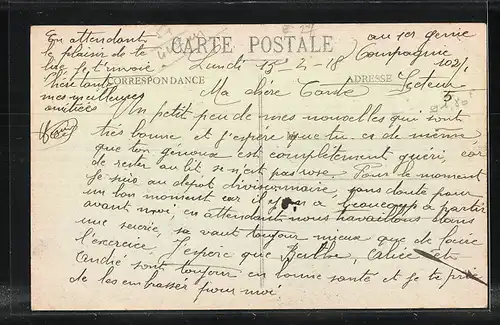 CARTE POSTALE
CORRESPONDANCE
ADRESSE
Lundi 15-4-18
au 1er génie
Compagnie
Secteur
Ma chère Tante
Un petit peu de mes nouvelles qui sont
très bonne et j'espère que tu es de même,
que ton genoux est complètement guéri, car
de rester au lit, se n'est pas rose. Pour le moment
je suis au dépot divisionnaire, sans doute pour
un bon moment car il y en a beaucoup à partir
avant moi, en attendant nous travaillons dans
une sucrie, sa vaut toujour mieux que de faire
l'exercice. J'espère que Berthe, et
André sont toujour en bonne santé et je te prie
de les embrasser pour moi.
En attendant
le plaisir de te
lire je t'envoie
chère tante
mes meilleures
amitiées